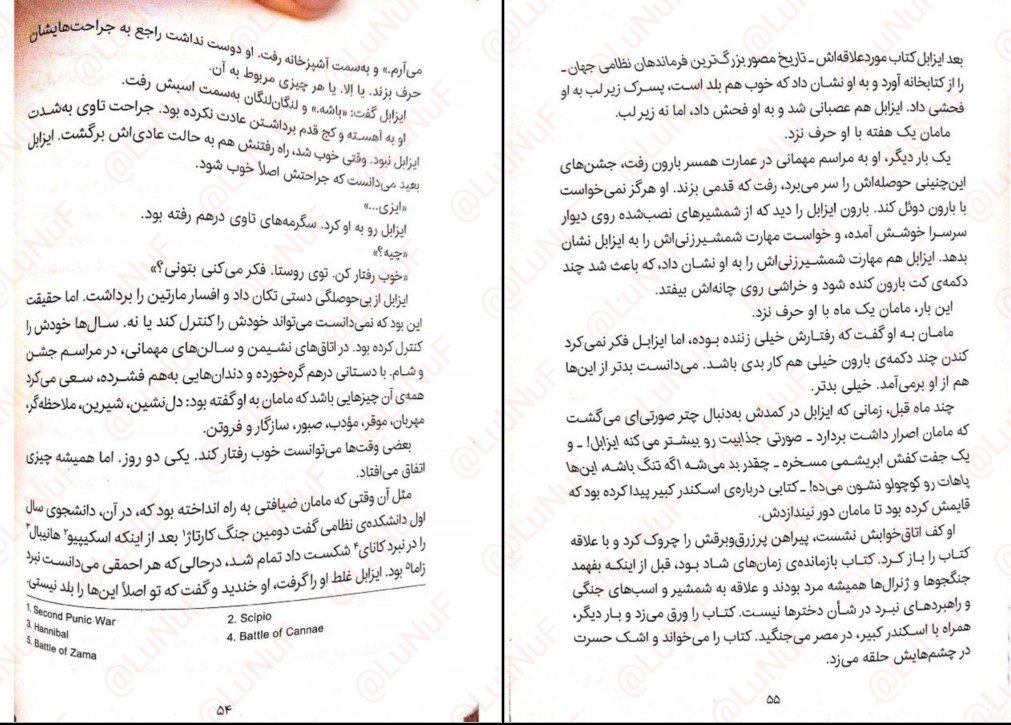 می‌آرم.» و به‌سمت آشپزخانه رفت. او دوست نداشت راجع به جراحت‌هایشان
حرف بزند. یا اِلا. یا هر چیزی مربوط به آن.
ایزابل گفت: «باشه.» و لنگان‌لنگان به‌سمت اسبش رفت.
او به آهسته و کج قدم برداشتن عادت نکرده بود. جراحت تاوی به‌شدت
ایزابل نبود. وقتی خوب شد، راه رفتنش هم به حالت عادی‌اش برگشت. ایزابل
بعید می‌دانست که جراحتش اصلاً خوب شود.
«ایزی...»
ایزابل رو به او کرد. سگرمه‌های تاوی درهم رفته بود.
«چیه؟»
«خوب رفتار کن. توی روستا. فکر می‌کنی بتونی؟»
ایزابل از بی‌حوصلگی دستی تکان داد و افسار مارتین را برداشت. اما حقیقت
این بود که نمی‌دانست می‌تواند خودش را کنترل کند یا نه. سال‌ها خودش را
کنترل کرده بود. در اتاق‌های نشیمن و سالن‌های مهمانی، در مراسم جشن
و شام. با دستانی درهم گره‌خورده و دندان‌هایی به‌هم فشرده، سعی می‌کرد
همه‌ی آن چیزهایی باشد که مامان به او گفته بود: دل‌نشین، شیرین، ملاحظه‌گر،
مهربان، موقر، مؤدب، صبور، سازگار و فروتن.
بعضی وقت‌ها می‌توانست خوب رفتار کند. یکی دو روز. اما همیشه چیزی
اتفاق می‌افتاد.
مثل آن وقتی که مامان ضیافتی به راه انداخته بود که، در آن، دانشجوی سال
اول دانشکده‌ی نظامی گفت دومین جنگ کارتاژ۱ بعد از اینکه اسکیپیو۲ هانیبال۳
را در نبرد کانای۴ شکست داد تمام شد، درحالی‌که هر احمقی می‌دانست نبرد
زاما۵ بود. ایزابل غلط او را گرفت، او خندید و گفت که تو اصلاً این‌ها را بلد نیستی.
1. Second Punic War
2. Scipio
3. Hannibal
4. Battle of Cannae
5. Battle of Zama
۵۴
بعد ایزابل کتاب موردعلاقه‌اش ـ تاریخ مصور بزرگ‌ترین فرماندهان نظامی جهان ـ
را از کتابخانه آورد و به او نشان داد که خوب هم بلد است، پسرک زیر لب به او
فحشی داد. ایزابل هم عصبانی شد و به او فحش داد، اما نه زیر لب.
مامان یک هفته با او حرف نزد.
یک بار دیگر، او به مراسم مهمانی در عمارت همسر بارون رفت، جشن‌های
این‌چنینی حوصله‌اش را سر می‌برد، رفت که قدمی بزند. او هرگز نمی‌خواست
با بارون دوئل کند. بارون ایزابل را دید که از شمشیرهای نصب‌شده روی دیوار
سرسرا خوشش آمده، و خواست مهارت شمشیرزنی‌اش را به ایزابل نشان
بدهد. ایزابل هم مهارت شمشیرزنی‌اش را به او نشان داد، که باعث شد چند
دکمه‌ی کت بارون کنده شود و خراشی روی چانه‌اش بیفتد.
این بار، مامان یک ماه با او حرف نزد.
مامان به او گفت که رفتارش خیلی زننده بوده، اما ایزابل فکر نمی‌کرد
کندن چند دکمه‌ی بارون خیلی هم کار بدی باشد. می‌دانست بدتر از این‌ها
هم از او برمی‌آمد. خیلی بدتر.
چند ماه قبل، زمانی که ایزابل در کمدش به‌دنبال چتر صورتی‌ای می‌گشت
که مامان اصرار داشت بردارد ـ صورتی جذابیت رو بیشتر می‌کنه ایزابل! ـ و
یک جفت کفش ابریشمی مسخره ـ چقدر بد می‌شه اگه تنگ باشه، این‌ها
پاهات رو کوچولو نشون می‌ده! ـ کتابی درباره‌ی اسکندر کبیر پیدا کرده بود که
قایمش کرده بود تا مامان دور نیندازدش.
او کف اتاق‌خوابش نشست، پیراهن پرزرق‌وبرقش را چروک کرد و با علاقه
کتاب را باز کرد. کتاب بازمانده‌ی زمان‌های شاد بود، قبل از اینکه بفهمد
جنگجوها و ژنرال‌ها همیشه مرد بودند و علاقه به شمشیر و اسب‌های جنگی
و راهبردهای نبرد در شأن دخترها نیست. کتاب را ورق می‌زد و بار دیگر،
همراه با اسکندر کبیر، در مصر می‌جنگید. کتاب را می‌خواند و اشک حسرت
در چشم‌هایش حلقه می‌زد.
۵۵
@LuNuF